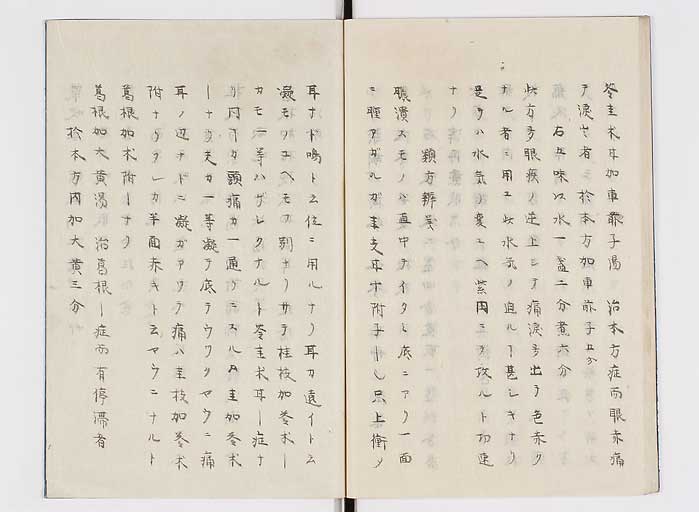 苓圭朮甘加車前子湯 治本方症而眼赤痛
テ涙出者 於本方加車前子五分
右五味以水一盞二分煮六分
此方多眼疾ノ逆上シテ痛涙多出テ色赤ク
ナル者ニ用ユ此水気ノ迫ルヿ甚シキナリ
是モハ水気ノ変ユヘ紫円ニテ攻ルト切速
ナリ 類方辨義
眼潰スモノハ真中テイタク底ニアリ一面
ニ腫アガルガ圭支朮附子ーレ只上衝ノ
耳ナド鳴ト云位ニ用ルナリ耳カ遠イト云
凝モノユヘモフ別ナリサテ桂枝加苓朮ー
カモ一等ハゲシクナルト苓圭朮甘ー症ナ
リ附子カ頭痛カ一通リニスルハ圭加苓朮
ーナリ夫カ一等凝テ底テウヅクヤウニ痛
耳ノ辺ナドニ凝カアリテ痛ハ圭枝加苓朮
附ナリクレカ半面赤キト云ヤウニナルト
葛根加朮附ーナリ
葛根加大黄湯 治葛根ー症而有停滞者
於本方内加大黄三分